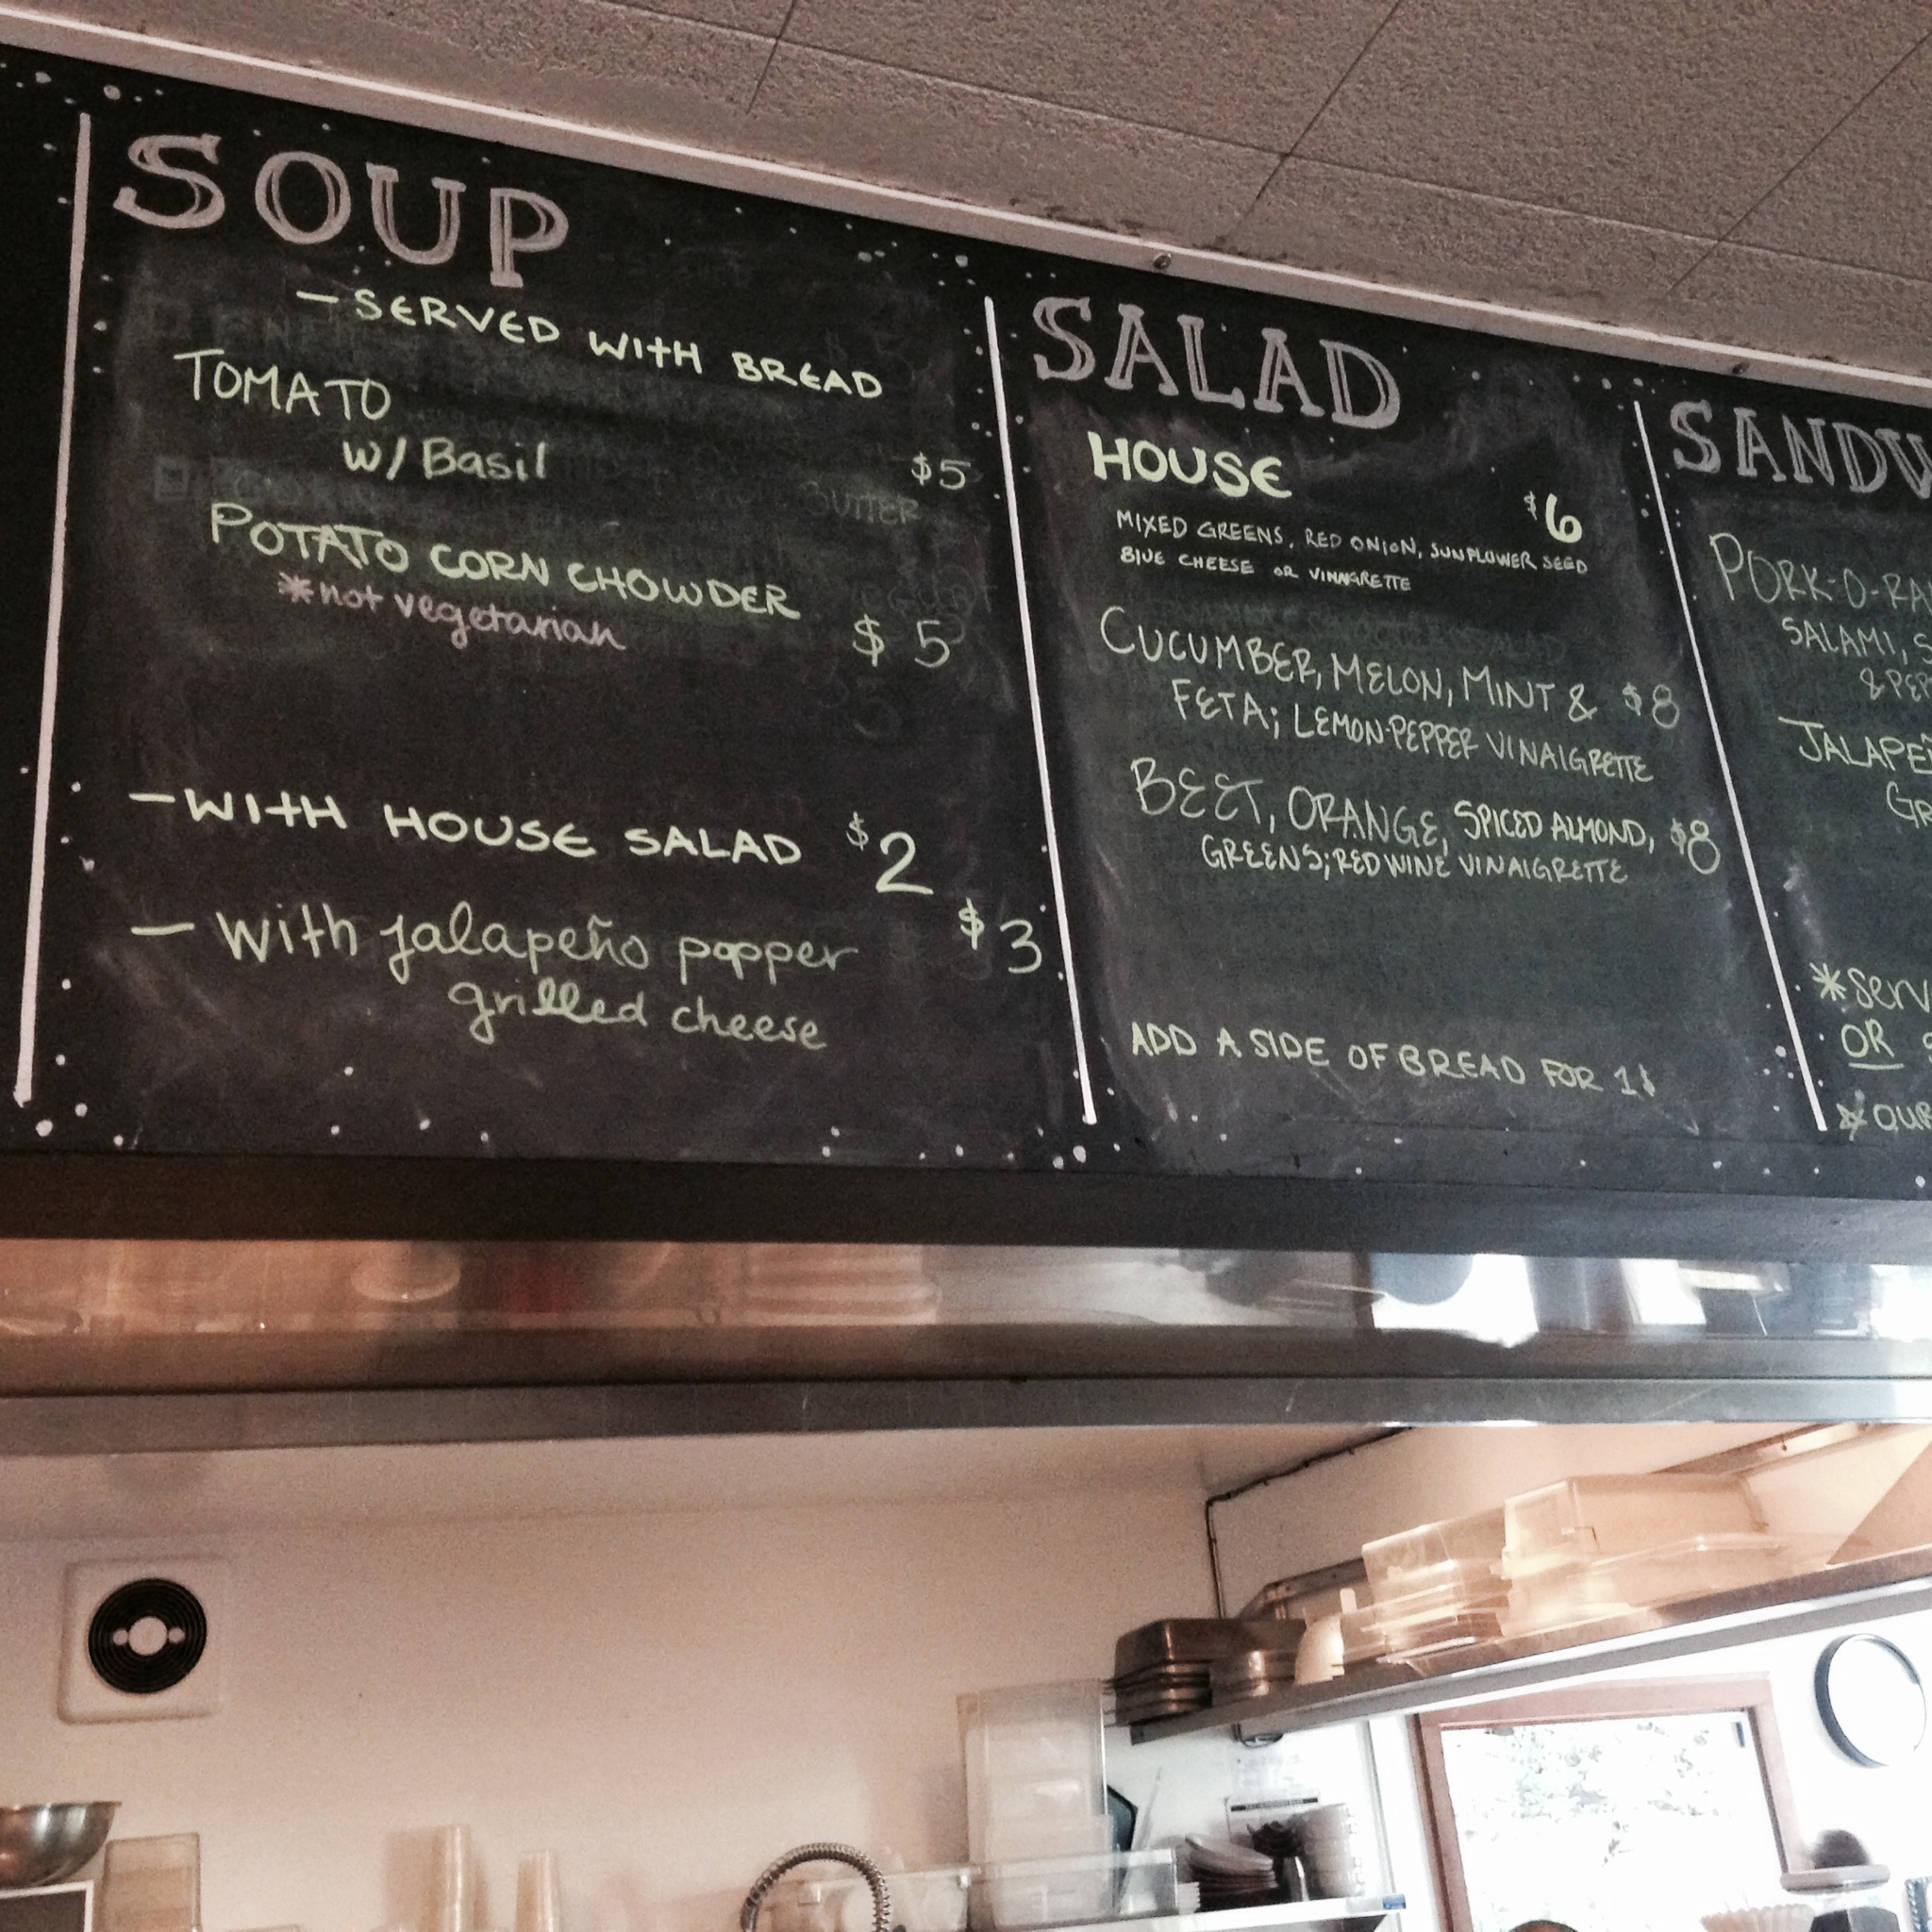 SOUP
- SERVED WITH BREAD
TOMATO
w/ Basil $5
POTATO CORN CHOWDER
*not vegetarian $5
- WITH HOUSE SALAD $2
- with jalapeño popper $3
grilled cheese
SALAD
HOUSE $6
MIXED GREENS, RED ONION, SUNFLOWER SEED
BLUE CHEESE OR VINAGRETTE
CUCUMBER, MELON, MINT & $8
FETA; LEMON-PEPPER VINAIGRETTE
BEET, ORANGE, SPICED ALMOND, $8
GREENS; RED WINE VINAIGRETTE
ADD A SIDE OF BREAD FOR 1$
SANDW
PORK-O-RA
SALAMI, S
& PEP
JALAPEÑ
GR
*serv
OR
OUR